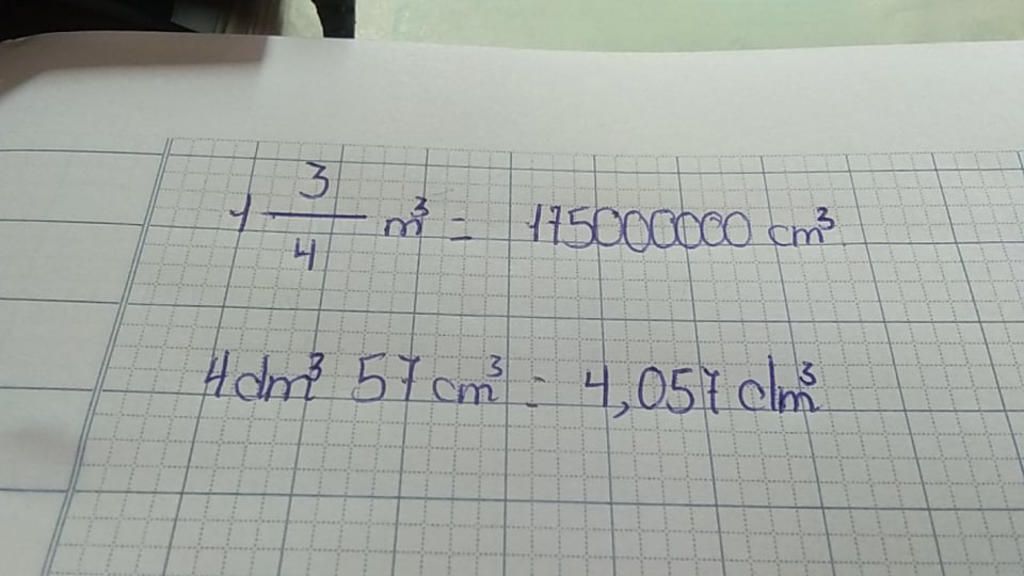 1 3/4 m³ = 175000000 cm³
4 dm³ 57 cm³ = 4,057 dm³